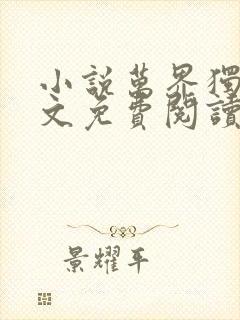 小說萬界獨
文免費閱讀
景耀平